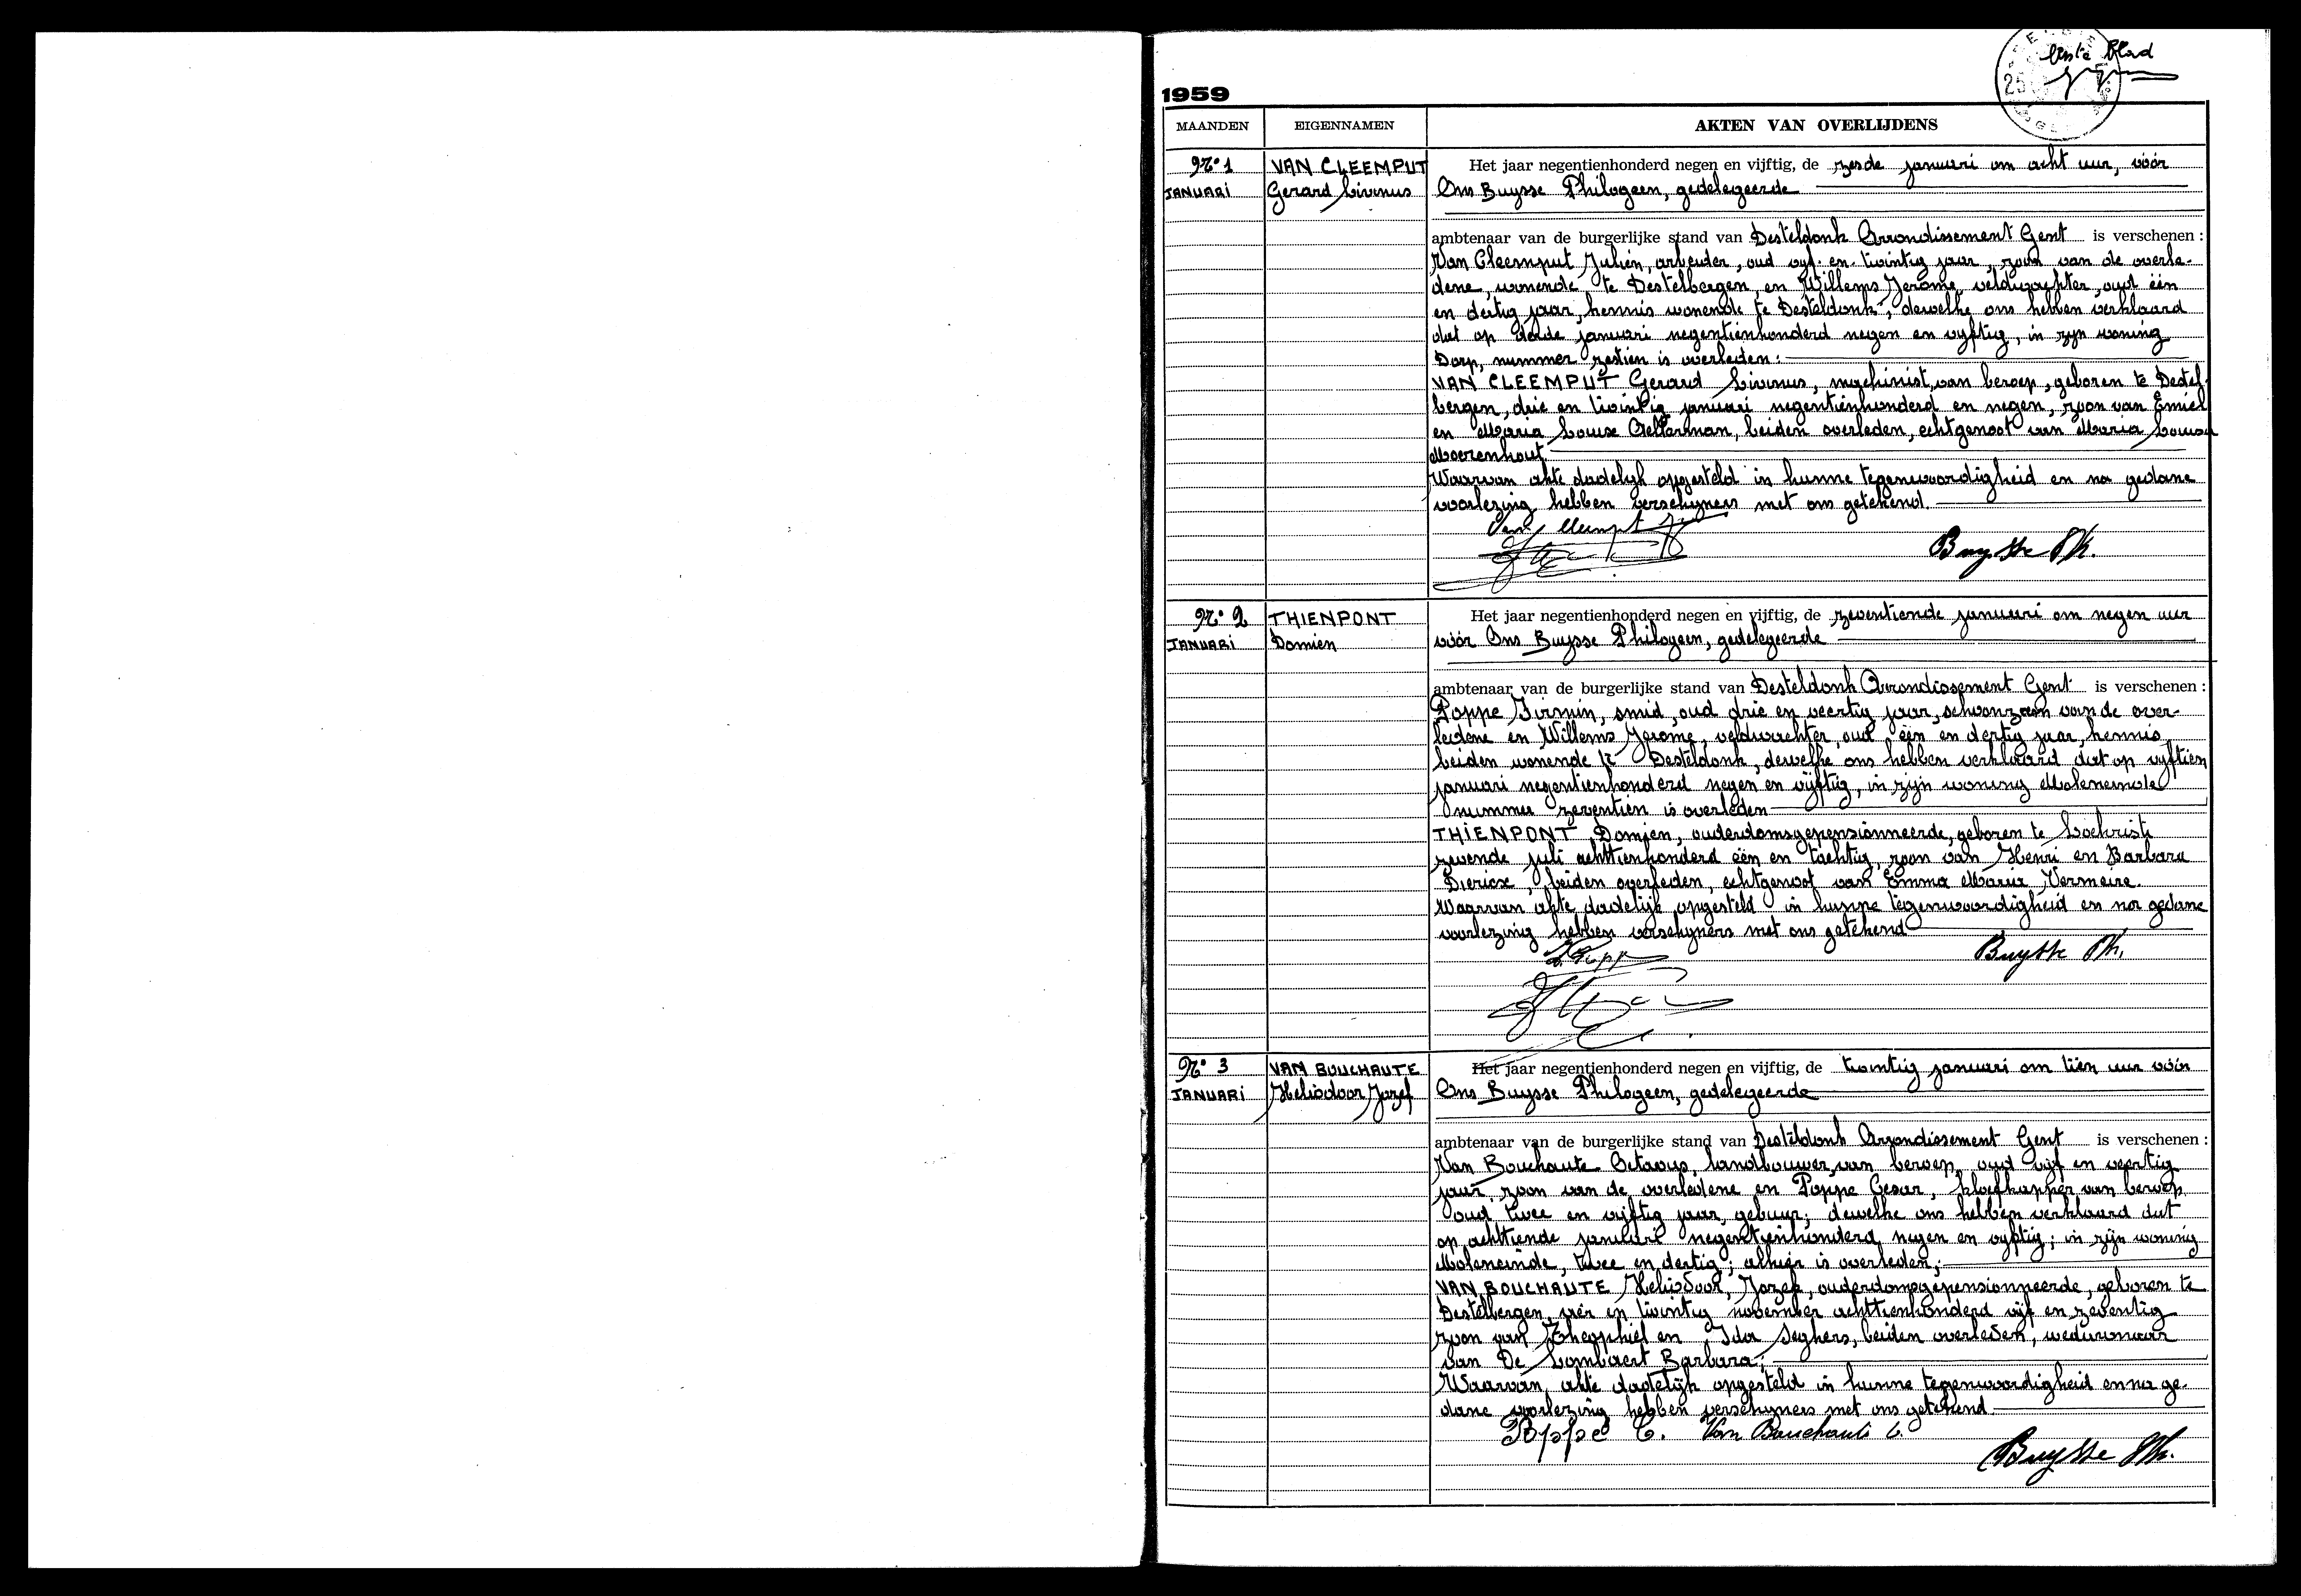 Eerste Blad
25
1959
MAANDEN EIGENNAMEN AKTEN VAN OVERLIJDENS
Nº 1 VAN CLEEMPUT Het jaar negentienhonderd negen en vijftig, de zesde januari om acht uur, vóór
JANUARI Gerard Livinus Ons Buysse Philogeen, gedelegeerde
ambtenaar van de burgerlijke stand van Desteldonk Arrondissement Gent is verschenen :
Van Cleemput Julien, arbeider, oud vijf en twintig jaar, zoon van de overle-
dene, wonende te Destelbergen, en Willems Jerome, veldwachter, oud één
en dertig jaar, kennis wonende te Desteldonk; dewelke ons hebben verklaard
dat op derde januari negentienhonderd negen en vyftig, in zyn woning
Dorp, nummer zestien is overleden:
VAN CLEEMPUT Gerard Livinus, machinist, van beroep, geboren te Destel-
bergen, drie en twintig januari negentienhonderd en negen, zoon van Emiel
en Maria Louise beiden overleden, echtgenoot van Maria Louisa
Moerenhout
Waarvan akte dadelyk opgesteld in hunne tegenwoordigheid en na gedane
voorlezing hebben verschyners met ons getekend.
Buysse Ph.
Nº 2 THIENPONT Het jaar negentienhonderd negen en vijftig, de zeventiende januari om negen uur
JANUARI Domien vóór Ons Buysse Philogeen, gedelegeerde
ambtenaar van de burgerlijke stand van Desteldonk Arrondissement Gent is verschenen :
Poppe Firmin, smid, oud drie en veertig jaar, schoonzoon van de over-
ledene en Willems Jerome, veldwachter, oud één en dertig jaar, kennis,
beiden wonende te Desteldonk, dewelke ons hebben verklaard dat op vyftien
januari negentienhonderd negen en vijftig, in zijn woning Moleneinde
nummer zeventien is overleden
THIENPONT Domien, ouderdomsgepensionneerde, geboren te Lochristi
zevende juli achttienhonderd één en tachtig, zoon van Henri en Barbara
Diericx, beiden overleden, echtgenoot van Emma Maria Vermeire.
Waarvan akte dadelijk opgesteld in hunne tegenwoordigheid en na gedane
voorlezing hebben verschyners met ons getekend
Buysse Ph.
Nº 3 VAN BOUCHAUTE Het jaar negentienhonderd negen en vijftig, de twintig januari om tien uur vóór
JANUARI Heliodoor Jozef Ons Buysse Philogeen, gedelegeerde
ambtenaar van de burgerlijke stand van Desteldonk Arrondissement Gent is verschenen :
Van Bouchaute Octaaf, landbouwer, van beroep, oud vijf en veertig
jaar, zoon van de overledene en Poppe Cesar, kloefkapper van beroep
oud twee en vijftig jaar, gebuur; dewelke ons hebben verklaard dat
op achttiende januari negentienhonderd negen en vyftig; in zijn woning
Moleneinde, twee en dertig; alhier is overleden;
VAN BOUCHAUTE Heliodoor, Jozef, ouderdomsgepensionneerde, geboren te
Destelbergen, vier en twintig november achttienhonderd vijf en zeventig
zoon van Theophiel en Ida Seghers, beiden overleden, weduwnaar
van De Lombaert Barbara;
Waarvan akte dadelijk opgesteld in hunne tegenwoordigheid en na ge-
dane voorlezing hebben verschyners met ons getekend
Poppe C. Van Bouchaute O.
Buysse Ph.